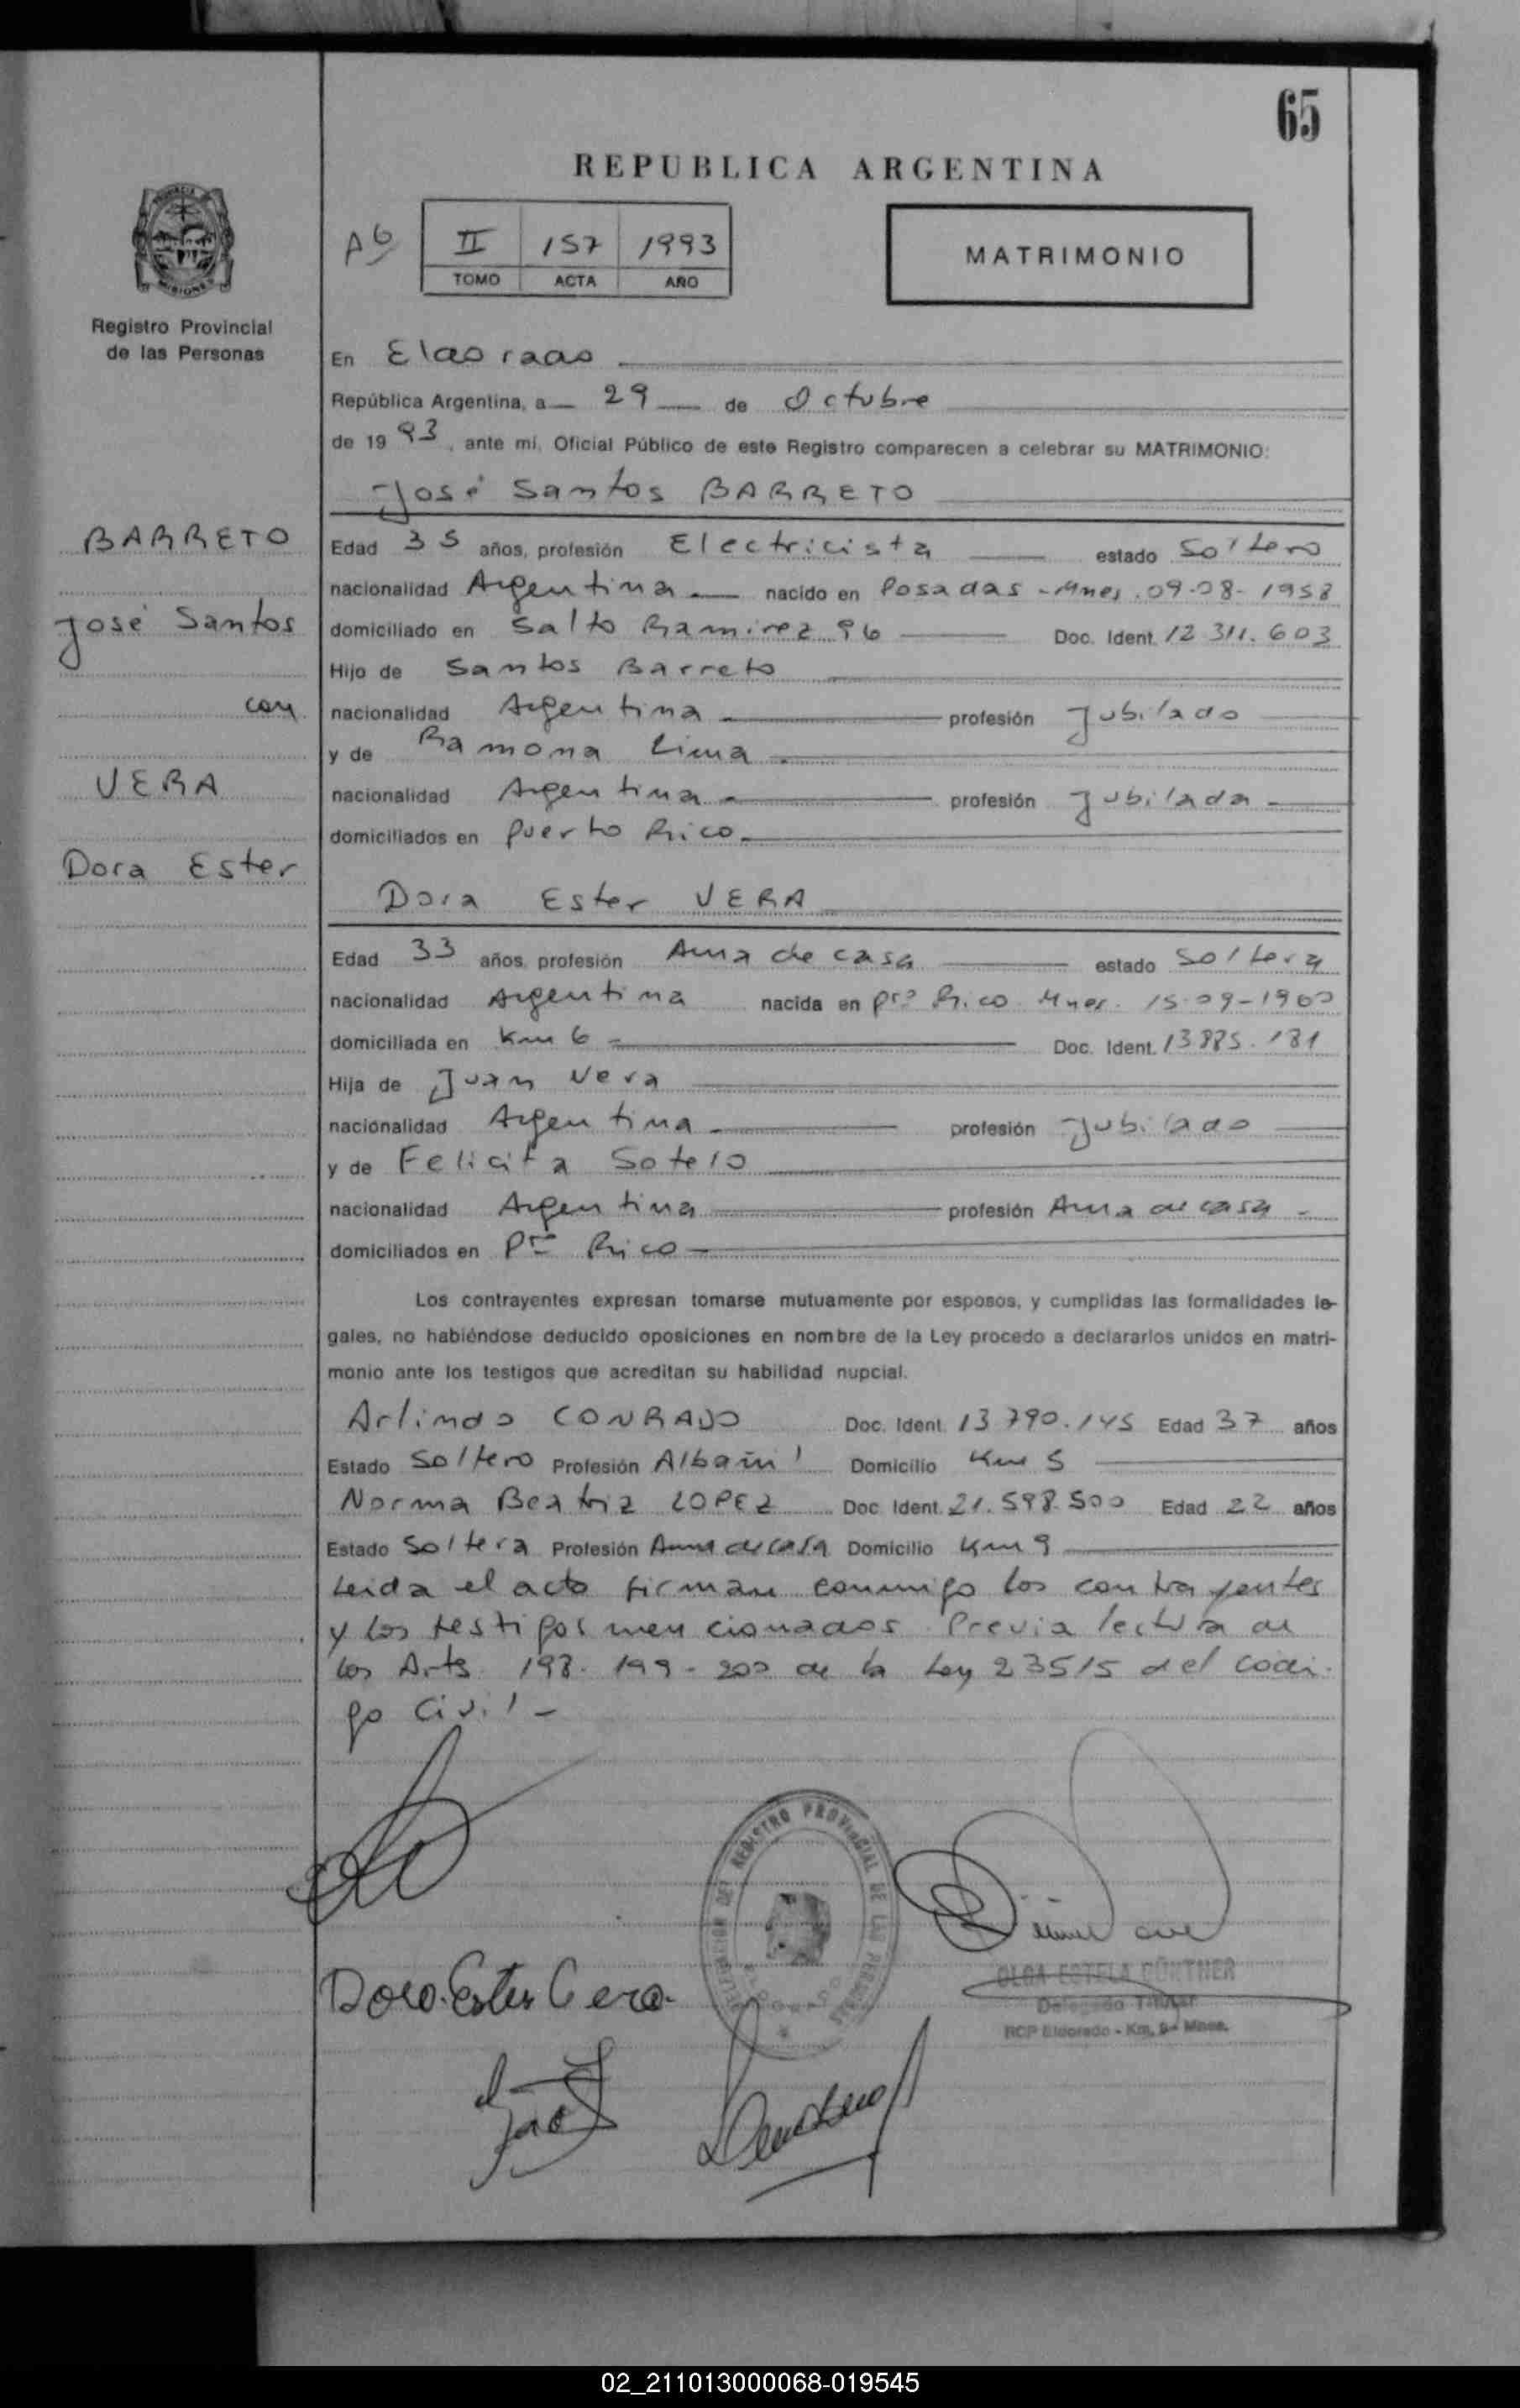 65
REPUBLICA ARGENTINA
A6 II 157 1993
TOMO ACTA AÑO
MATRIMONIO
MISIONES
Registro Provincial
de las Personas
En Eldorado
República Argentina, a 29 de Octubre
de 1993, ante mí, Oficial Público de este Registro comparecen a celebrar su MATRIMONIO:
José Santos BARRETO
BARRETO
José Santos
con
VERA
Dora Ester
Edad 35 años, profesión Electricista estado Soltero
nacionalidad Argentina nacido en Posadas - Mnes. 09-08-1958
domiciliado en Salto Ramirez 96 Doc. Ident. 12.311.603
Hijo de Santos Barreto
nacionalidad Argentina profesión Jubilado
y de Ramona Lima
nacionalidad Argentina profesión Jubilada
domiciliados en Puerto Rico
Dora Ester VERA
Edad 33 años, profesión Ama de casa estado Soltera
nacionalidad Argentina nacida en Pto Rico Mnes. 15-09-1960
domiciliada en Km 6 Doc. Ident. 13.885.181
Hija de Juan Vera
nacionalidad Argentina profesión Jubilado
y de Felicita Sotelo
nacionalidad Argentina profesión Ama de casa
domiciliados en Pto Rico
Los contrayentes expresan tomarse mutuamente por esposos, y cumplidas las formalidades le-
gales, no habiéndose deducido oposiciones en nombre de la Ley procedo a declararlos unidos en matri-
monio ante los testigos que acreditan su habilidad nupcial.
Arlindo CONRADO Doc. Ident. 13.790.145 Edad 37 años
Estado Soltero Profesión Albañil Domicilio Km 5
Norma Beatriz LOPEZ Doc. Ident. 21.598.500 Edad 22 años
Estado Soltera Profesión Ama de casa Domicilio Km 9
Leida el acto firman conmigo los contrayentes
y los testigos mencionados. Previa lectura de
los Arts. 198-199-200 de la Ley 23515 del codi-
go Civil -
DELEGACION DEL REGISTRO PROVINCIAL DE LAS PERSONAS
ELDORADO
Dora Ester Vera
OLGA ESTELA GÜRTNER
Delegado Titular
RCP Eldorado - Km. 9 - Mnes.
02_211013000068-019545